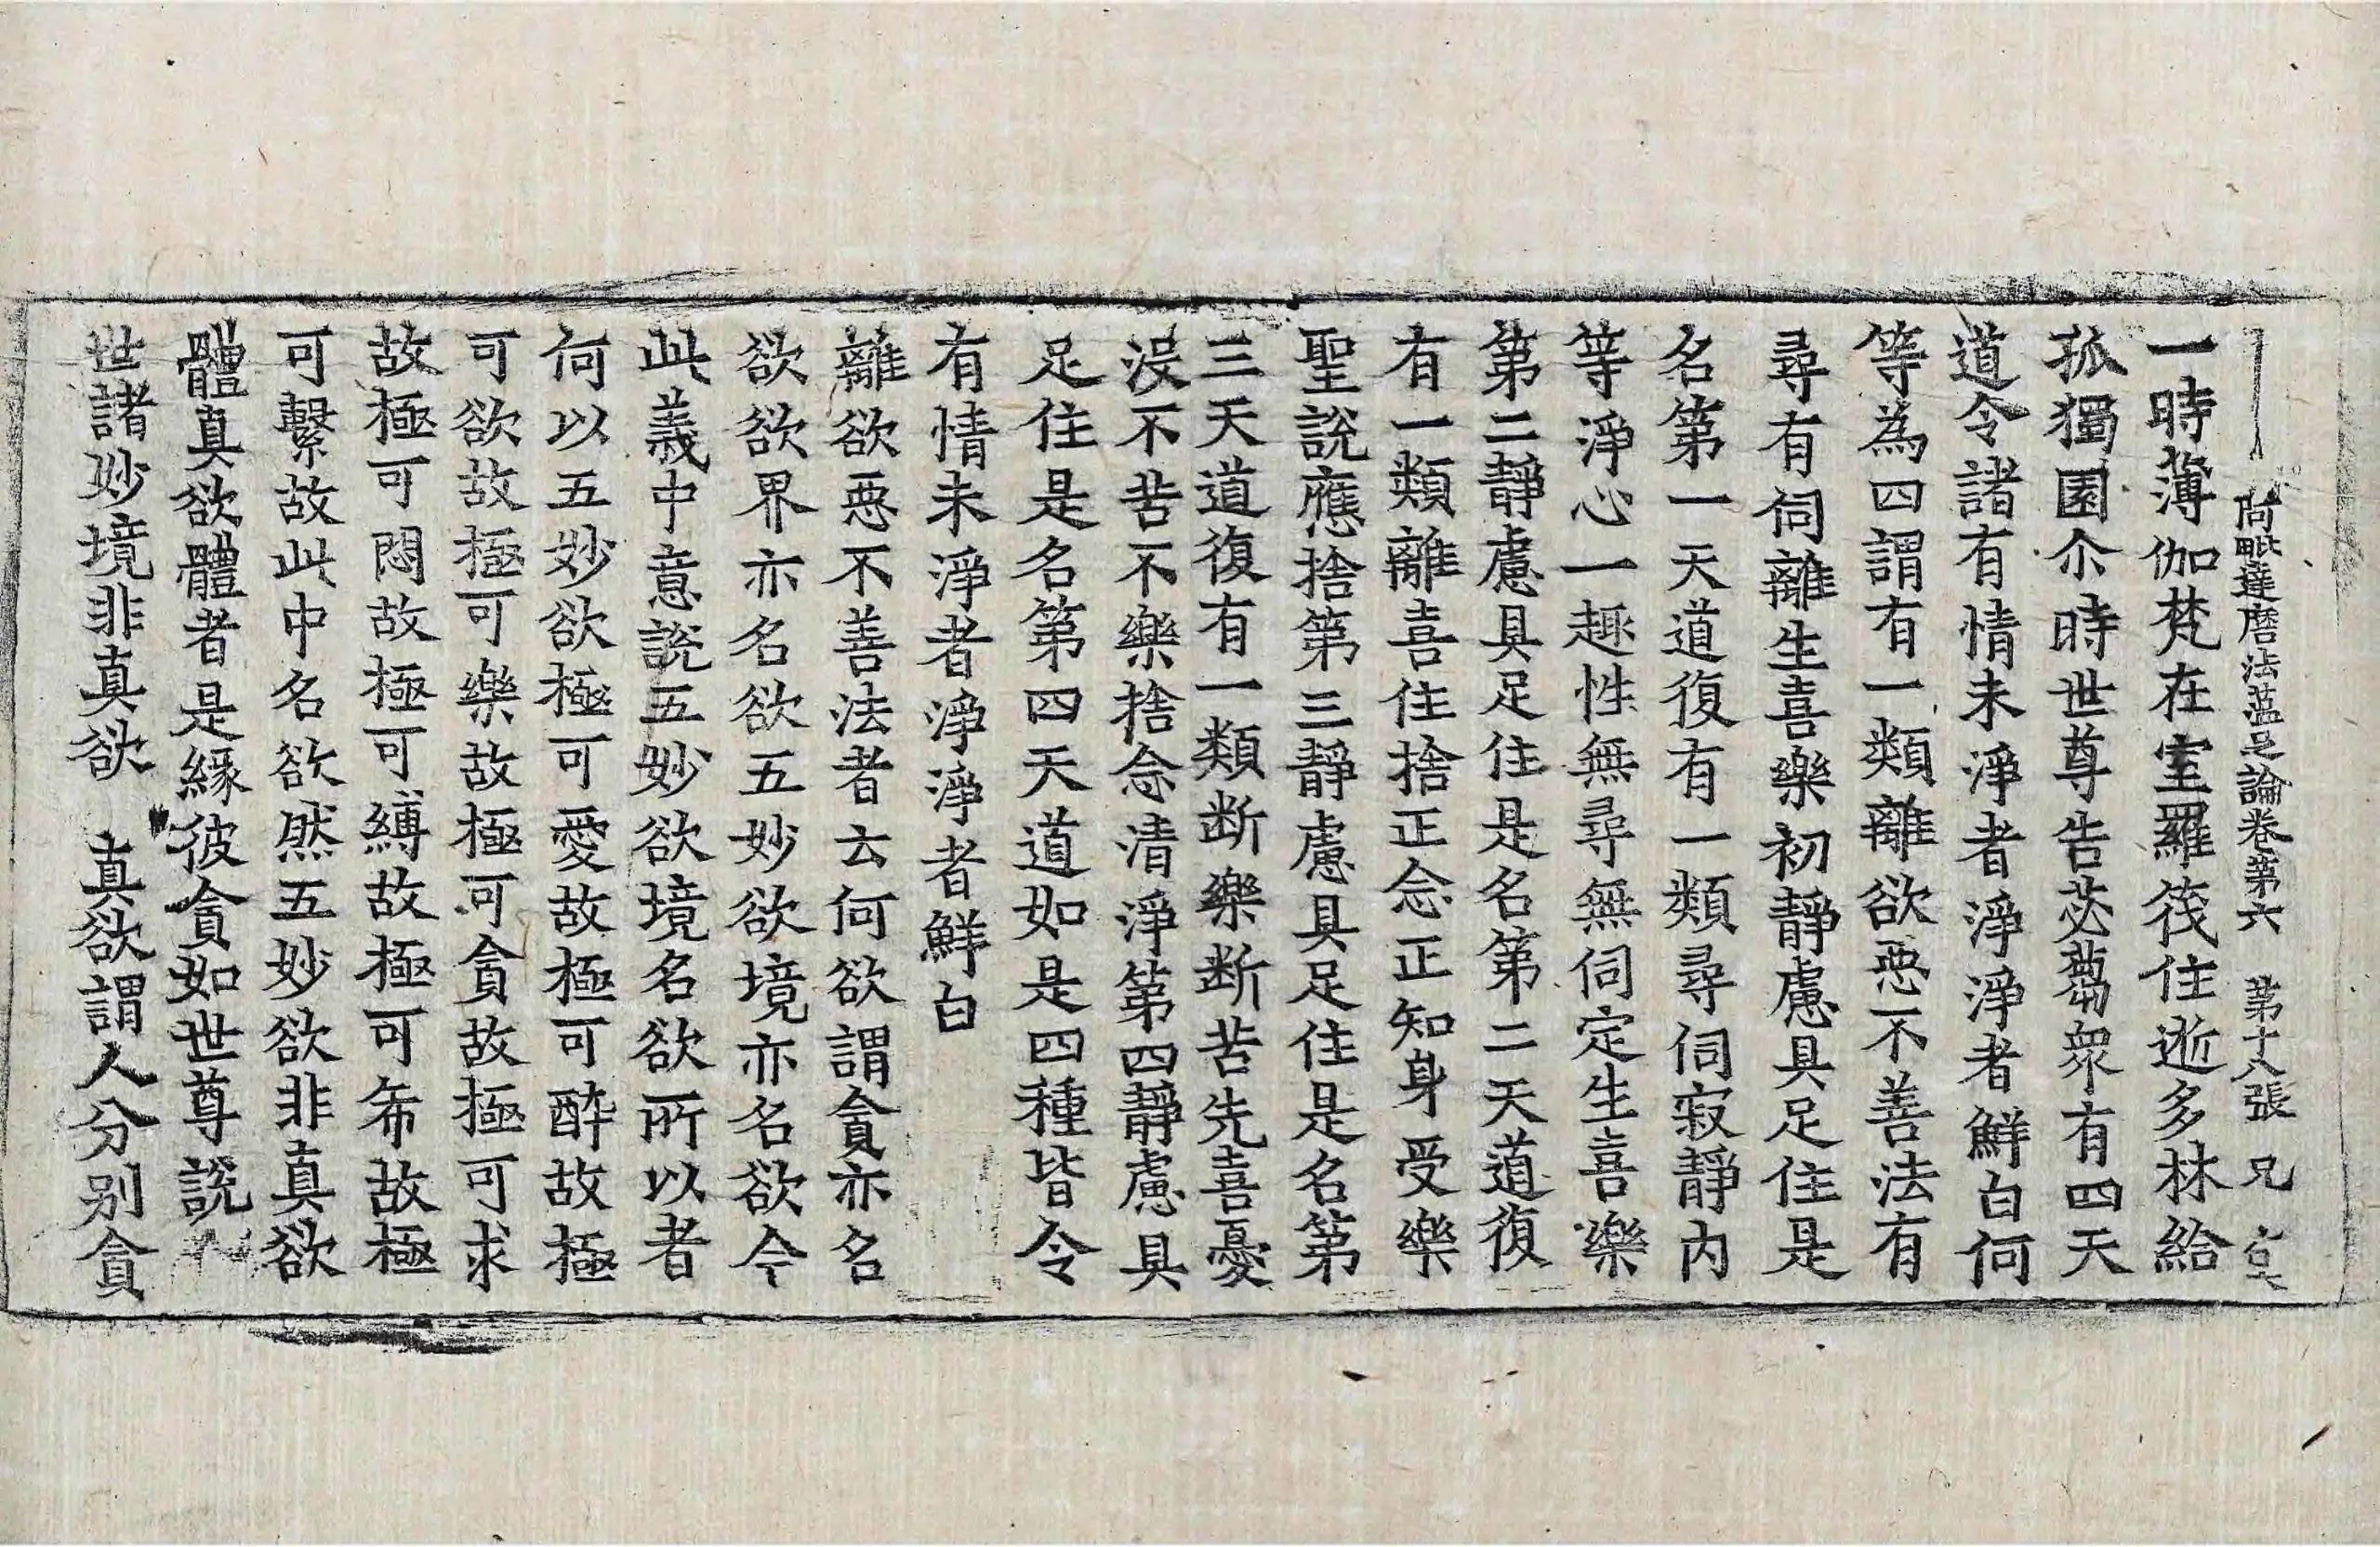 阿毗達磨法蘊足論卷第六 第十八張 兄
一時薄伽梵在室羅筏住逝多林給
孤獨園尒時世尊告苾蒭衆有四天
道令諸有情未淨者淨淨者鮮白何
等為四謂有一類離欲惡不善法有
尋有伺離生喜樂初靜慮具足住是
名第一天道復有一類尋伺寂靜內
等淨心一趣性無尋無伺定生喜樂
第二靜慮具足住是名第二天道復
有一類離喜住捨正念正知身受樂
聖說應捨第三靜慮具足住是名第
三天道復有一類断樂断苦先喜憂
沒不苦不樂捨念清淨第四靜慮具
足住是名第四天道如是四種皆令
有情未淨者淨淨者鮮白
離欲惡不善法者云何欲謂貪亦名
欲欲界亦名欲五妙欲境亦名欲今
此義中意說五妙欲境名欲所以者
何以五妙欲極可愛故極可醉故極
可欲故極可樂故極可貪故極可求
故極可悶故極可縛故極可希故極
可繫故此中名欲然五妙欲非真欲
體真欲體者是緣彼貪如世尊說
世諸妙境非真欲 真欲謂人分別貪